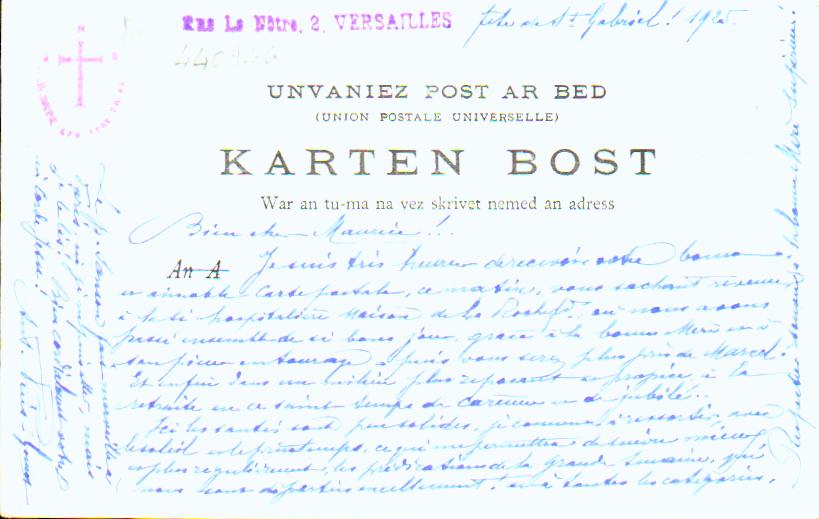 Rue Le Nôtre, 2, VERSAILLES
fête de St Gabriel! 1925
UNVANIEZ POST AR BED
(UNION POSTALE UNIVERSELLE)
KARTEN BOST
War an tu-ma na vez skrivet nemed an adress
Bien cher Maurice!..
An A
Je suis très heureux de recevoir votre bonne
et aimable carte postale, ce matin, vous sachant revenu
à la si hospitalière Maison de La Rochefd. où nous avons
passé ensemble de si bons jours, grâce à la bonne Mère et à
son pieux entourage puis vous serez plus près de Marcel!
Et enfin dans un milieu plus reposant et propice à la
retraite en ce saint temps de carême et de jubilé..
Ici les santés sont peu solides, je commence à ressortir avec
le soleil et le printemps, ce qui me permettra de suivre mieux
et plus régulièrement, les prédications de la grande semaine, qui
nous sont départies excellemment! et à toutes les catégories.
Respectueux à la bonne Mère supérieure!
Le P. fait merveille à
Paris, mais
je le lis! Bien votre
in Corde Jesu!